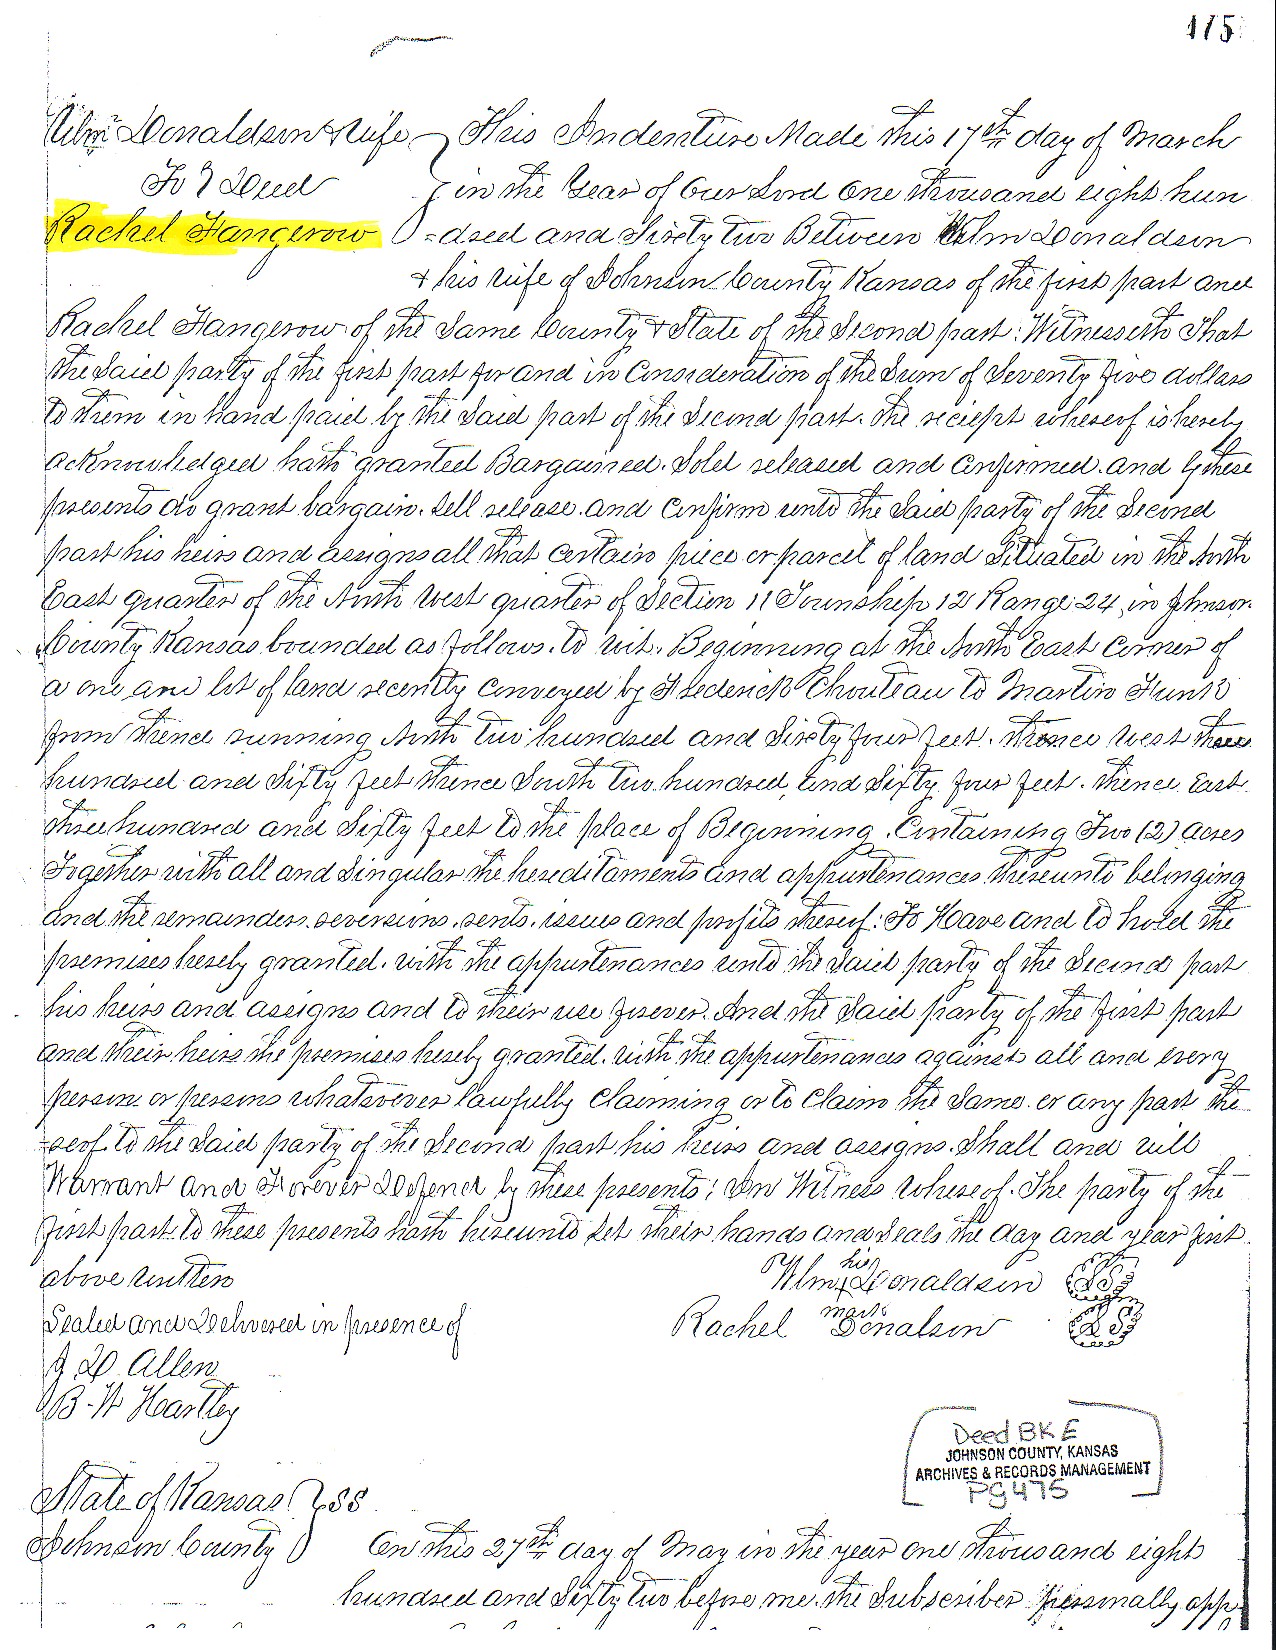 475
Wlm Donaldson & Wife } This Indenture Made this 17th day of March
To } Deed } in the Year of Our Lord One thousand eight hun
Rachel Fangerow } =dred and Sixty two Between Wlm Donaldson
+ his wife of Johnson County Kansas of the first part and
Rachel Fangerow of the Same County & State of the Second part: Witnesseth That
the Said party of the first part for and in Consideration of the Sum of Seventy five dollars
to them in hand paid by the Said part of the Second part. the reciept whereof is hereby
acknowledged hath granted Bargained. Sold released and Confirmed. and by these
presents do grant bargain. Sell release. and Confirm unto the Said party of the Second
part his heirs and assigns all that certain piece or parcel of land Situated in the North
East quarter of the North West quarter of Section 11 Township 12 Range 24, in Johnson
County Kansas bounded as follows. to wit. Beginning at the North East corner of
a one and lot of land recently conveyed by Frederick Chouteau to Martin Funk
from thence running North two hundred and Sixty four feet. thence west three
hundred and Fifty feet thence South two hundred and Sixty four feet. thence East
three hundred and Fifty feet to the place of Beginning. Containing Two (2) acres
Together with all and Singular the hereditaments and appurtenances thereunto belonging
and the remainders. reversions. rents. issues and profits thereof: To Have and to hold the
premises hereby granted. with the appurtenances unto the Said party of the Second part
his heirs and assigns and to their use forever. And the Said party of the first part
and their heirs the premises hereby granted. with the appurtenances against all and every
person or persons whatsoever lawfully claiming or to claim the Same. or any part the
=reof. to the Said party of the Second part his heirs and assigns. Shall and will
Warrant and Forever Defend by these presents: In Witness whereof. The party of the
first part to these presents hath hereunto Set their hands and Seals the day and year first
above written
his
Wlm X Donaldson LS
mark
Sealed and Delivered in presence of
Rachel Donalson LS
J D Allen
B. W Hartley
Deed BK E
JOHNSON COUNTY, KANSAS
ARCHIVES & RECORDS MANAGEMENT
PG 475
State of Kansas } SS
Johnson County } On this 27th day of May in the year one thousand eight
hundred and Sixty two before me. the Subscriber personally app